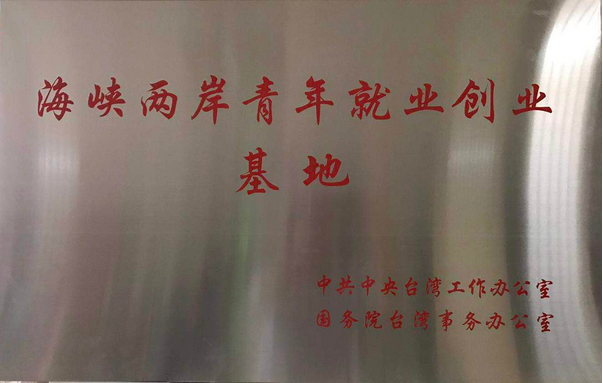 海峡两岸青年就业创业
基地
中共中央台湾工作办公室
国务院台湾事务办公室